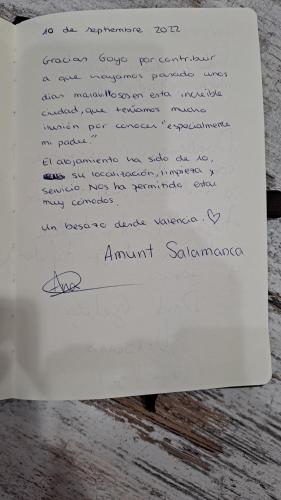 10 de septiembre 2022
Gracias Goyo por contribuir
a que hayamos pasado unos
días maravillosos en esta increíble
ciudad, que teníamos mucha
ilusión por conocer "especialmente
mi padre".
El alojamiento ha sido de 10,
su localización, limpieza y
servicio. Nos ha permitido estar
muy cómodos.
Un besazo desde Valencia. ♡
Amunt Salamanca
Ana